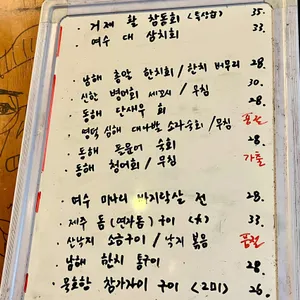 · 거제 활 참돔회 (뱃살회) 35.
· 여수 대 삼치회 33.
· 남해 홍악 한치회 / 한치 버무리 28.
· 신안 병어회 세꼬시 / 무침 30.
· 동해 단새우 회 28.
· 영덕 심해 대나발 소라숙회 / 무침 품절
· 동해 돌문어 숙회 28.
· 동해 청어회 / 무침 가을
· 여수 미나리 바지락살 전 28.
· 제주 돔 (연자돔) 구이 33.
· 산낙지 소금구이 / 낙지 볶음 품절
· 남해 한치 통구이 28.
· 묵호항 참가자미 구이 <2미> 26.